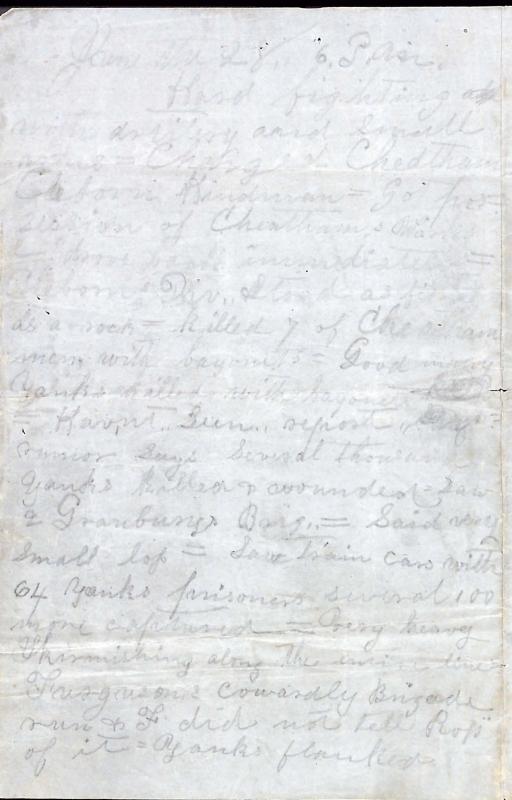 June the 28, 6, P.M.
Hard fighting
with artillery and Small
arms = Charged Cheatham
Claborn Hindman = Go pos-
session of Cheathams Works
= drove back immediately =
Claborns Div., Stood as firm
as a rock = killed 7 of Cheatham
men with bayonets = Good many
Yanks killed with bayonet
= Hav,nt,, Seen,, report,,
rumor Says Several thousand
Yanks killed & wounded = Saw
Granburys Brig., = Said very
Small loss = Saw train cars with
64 Yanks prisoners several 100
more captured = Very heavy
Skirmishing along the entire line
Furgusons cowardly Brigade
run & F. did not tell Ross
of it = Yanks flanked